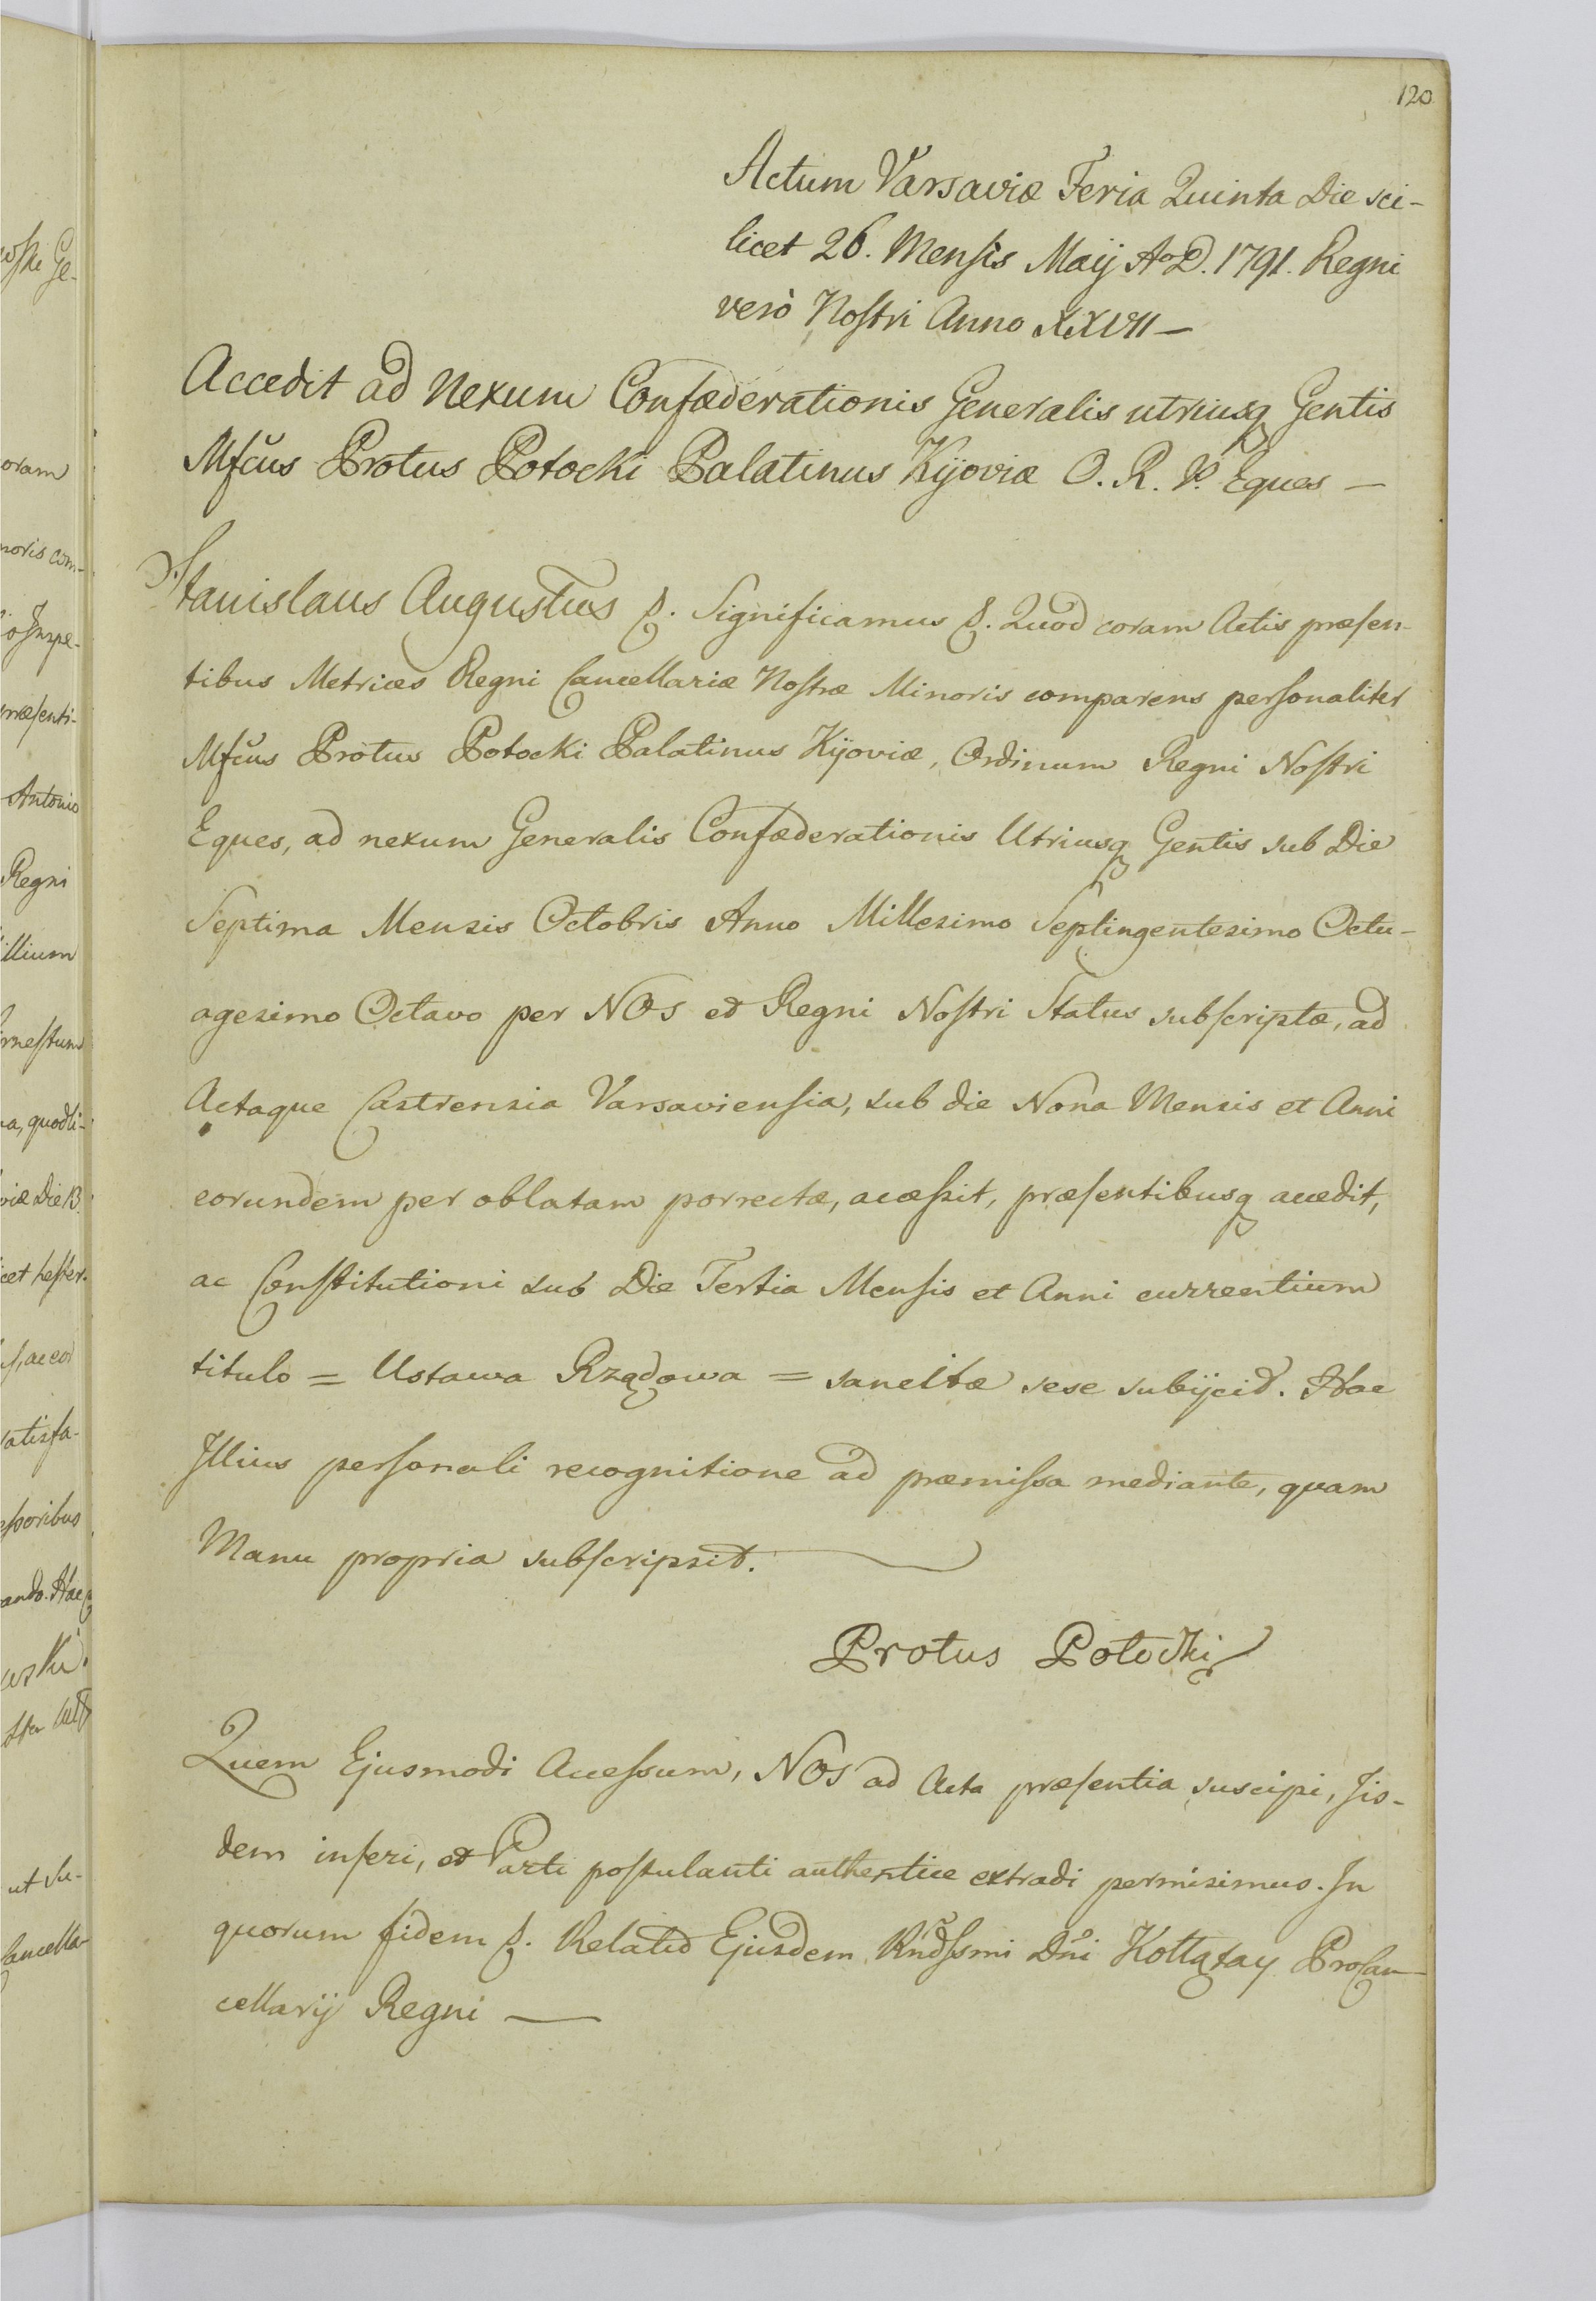 120
Actum Varsaviæ Feria Quinta Die sci-
licet 26. Mensis Maij AoD. 1791. Regni
verò Nostri Anno XXVII —
Accedit ad Nexum Confæderationis Generalis utriusq Gentis
Mfcus Protus Potocki Palatinus Kijoviæ O. R. P. Eques —
Stanislaus Augustus &. Significamus &. Quod coram Actis præsen-
tibus Metrices Regni Cancellariæ Nostræ Minoris comparens personaliter
Mfcus Protus Potocki Palatinus Kijoviæ, Ordinum Regni Nostri
Eques, ad nexum Generalis Confæderationis Utriusq Gentis sub Die
Septima Mensis Octobris Anno Millesimo Septingentesimo Octu-
agesimo Octavo per NOS et Regni Nostri Status subscriptæ, ad
Actaque Castrensia Varsaviensia, sub die Nona Mensis et Anni
eorundem per oblatam porrectæ, accessit, præsentibusq accedit,
ac Constitutioni sub Die Tertia Mensis et Anni currentium
titulo = Ustawa Rządowa = sancitæ sese subijcit. Hac
Illius personali recognitione ad præmissa mediante, quam
Manu propria subscripsit.
Protus Potocki
Quem Ejusmodi Accessum, NOS ad Acta præsentia suscipi, Iis-
dem inseri, et Parti postulanti authentice extradi permisimus. In
quorum fidem &. Relatio Ejusdem Rndssmi Dni Kołłątay ProCan-
cellarij Regni —